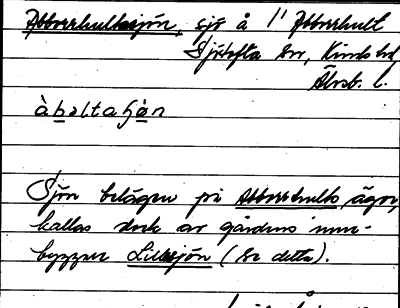 Abborrhultasjön, sjö å 1/1 Abborrhult
Sjötofta sn, Kinds hd,
Älvsb. l.
àbəltaʃö̀n
Sjön belägen på Abborrhults ägor,
kallas dock av gårdens inne-
byggare Lillsjön (se detta).